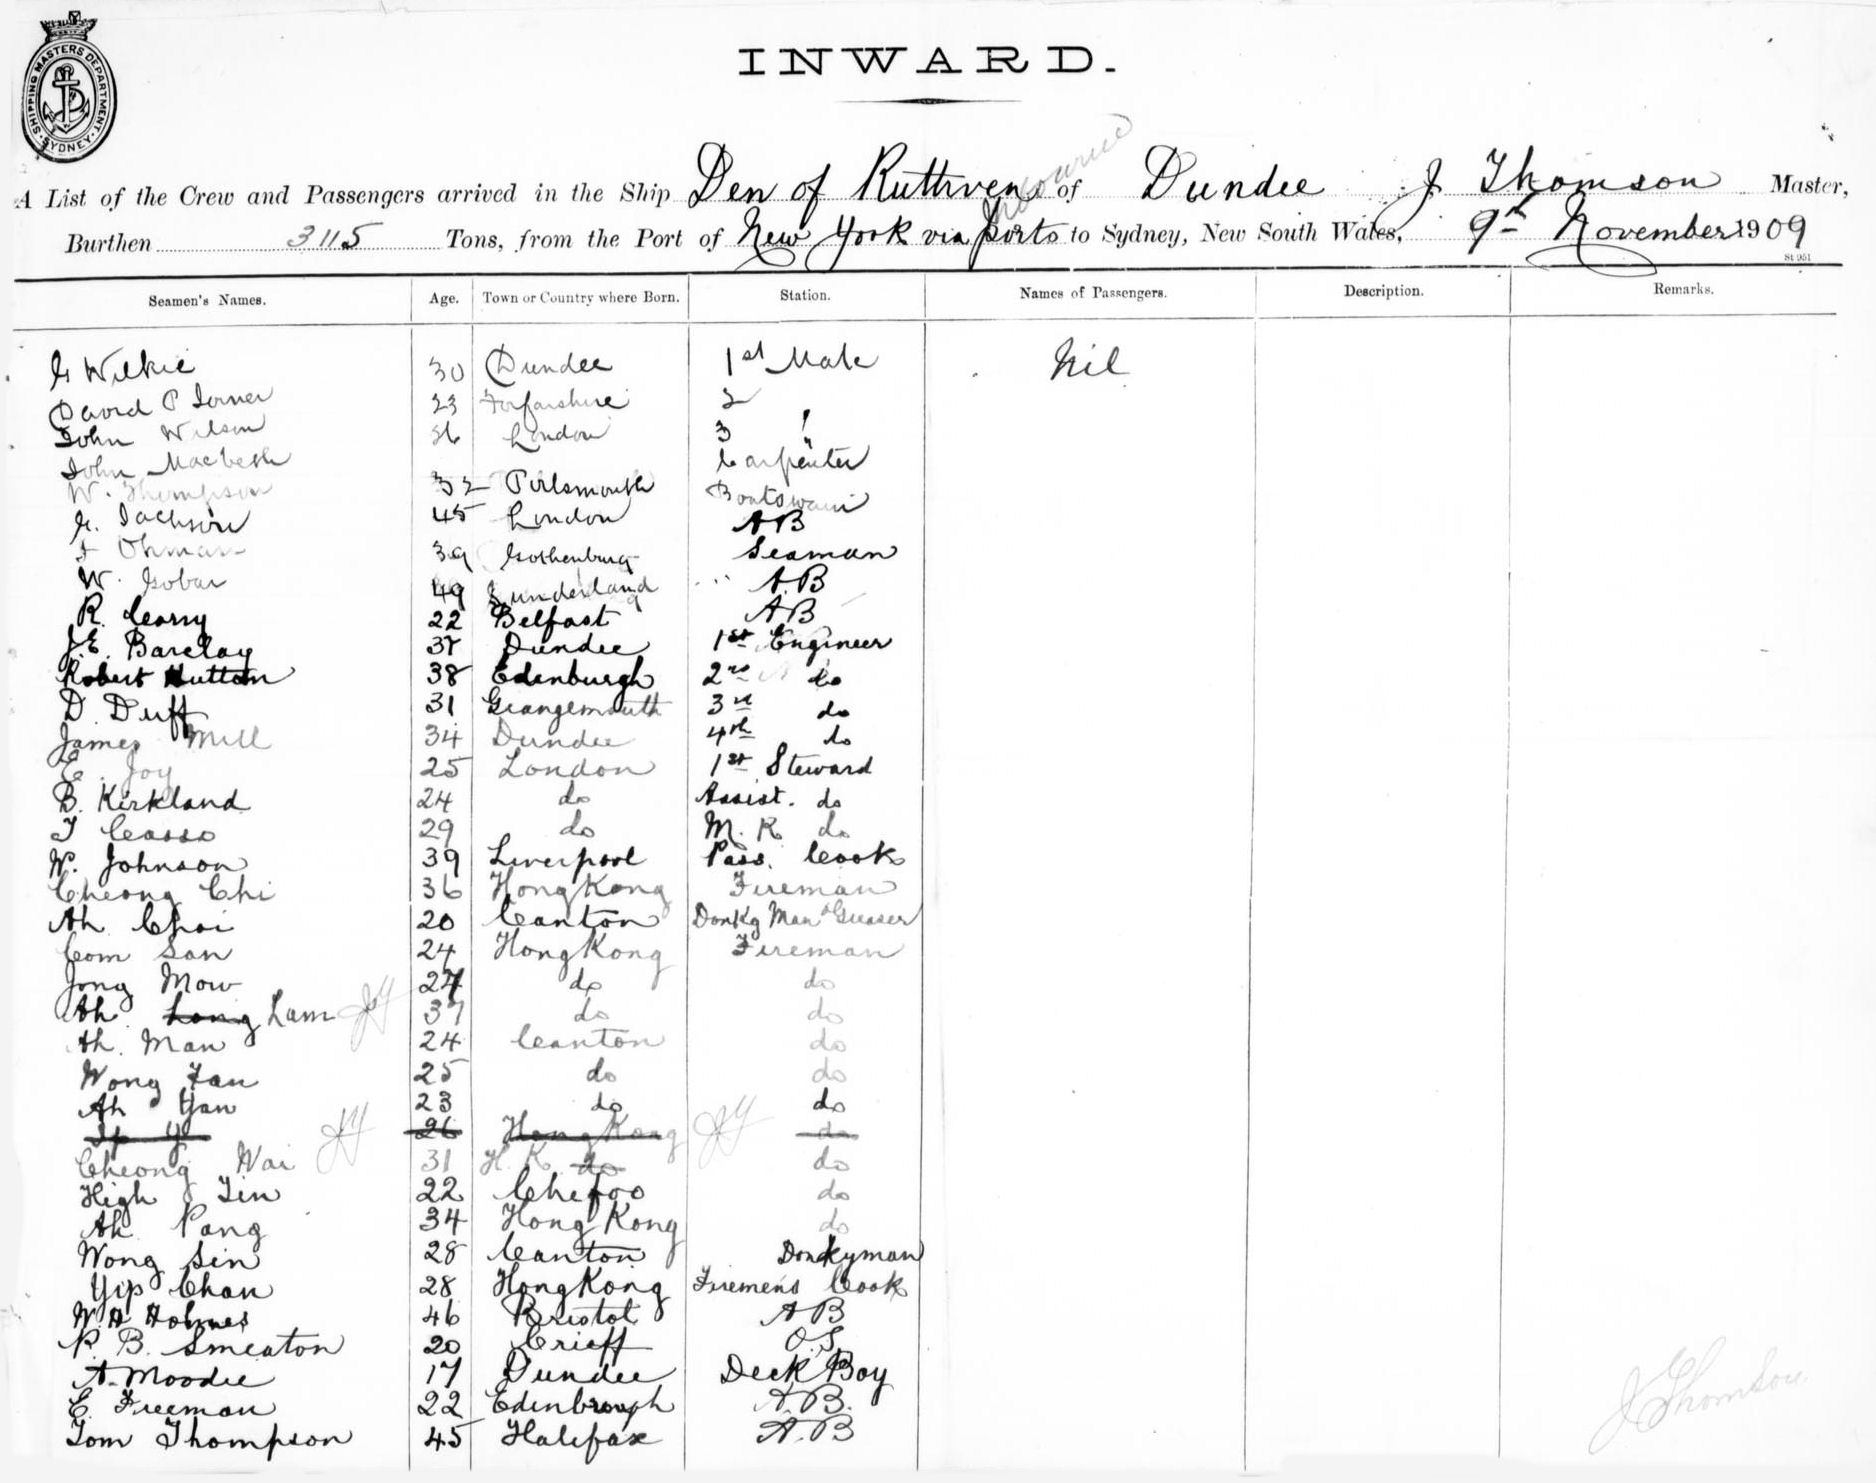 SHIPPING MASTERS DEPARTMENT · SYDNEY ·
INWARD.
A List of the Crew and Passengers arrived in the Ship Den of Ruthven of Dundee J Thomson Master,
Burthen 3115 Tons, from the Port of New York via ports to Sydney, New South Wales, 9th November 1909
St 951
Seamen's Names. Age. Town or Country where Born. Station. Names of Passengers. Description. Remarks.
G Wilkie 30 Dundee 1st Mate Nil
David P 23 Forfarshire 2 "
John Wilson 26 London 3 "
John Macbeth Carpenter
W. Thompson 32 Portsmouth Boatswain
G. Jackson 45 London AB
Ohman 39 Gothenburg Seaman
W. Gobar 49 Sunderland A.B
R. Carry 22 Belfast AB
J.E. Barclay 37 Dundee 1st Engineer
Robert Hutton 38 Edinburgh 2nd do
D. Duff 31 Grangemouth 3rd do
James Mill 34 Dundee 4th do
E. Joy 25 London 1st Steward
B. Kirkland 24 do Assist. do
29 do M. R. do
W. Johnson 39 Liverpool Pass. Cook
Cheong Chi 36 Hong Kong Fireman
Ah Choi 20 Canton Donky Man & Greaser
Com San 24 Hong Kong Fireman
Jong Mow 24 do do
Ah Long Lam 37 do do
Ah. Man 24 Canton do
Wong Fan 25 do do
Ah Yan 23 do do
Ip 26 Hong Kong do
Cheong Wai 31 H. K. do do
High Tin 22 Chefoo do
Ah Pang 34 Hong Kong do
Wong Sin 28 Canton Donkyman
Yip Chan 28 Hong Kong Firemens Cook
W. H Holmes 46 Bristol AB
P. B. Smeaton 20 Crieff O.S.
A. Moodie 17 Dundee Deck Boy
E. Freeman 22 Edinbrough A.B.
Tom Thompson 45 Halifax A.B
J Thomson